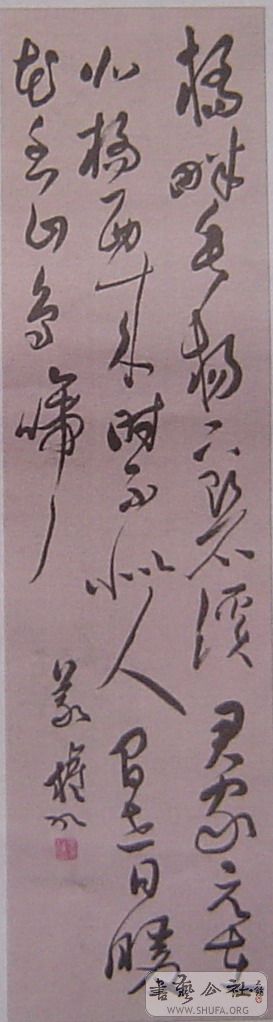 橋畔垂楊下碧溪君家元在
北橋西来時不似人間世日暖
花香山鳥啼
書藝公社
WWW.SHUFA.ORG